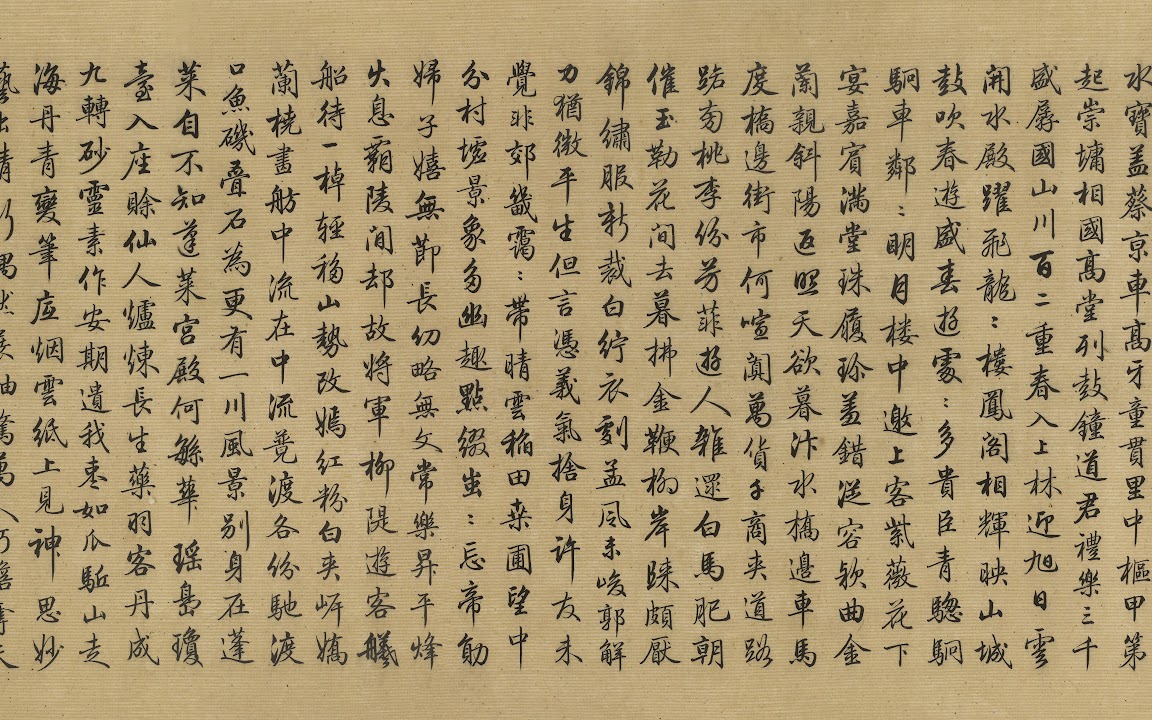 水寶蓋蔡京車高牙童貫里中樞甲第
起崇墉相國高堂列鼓鐘道君禮樂三千
盛孱國山川百二重春入上林迎旭日雲
開水殿躍飛龍：樓鳳閣相輝映山城
鼓吹春遊盛春遊處：多貴臣青驄駉
駉車鄰：明月楼中邀上客紫薇花下
宴嘉賓滿堂珠履珍蓋錯從容款曲金
蘭親斜陽返照天欲暮汴水橋邉車馬
度橋邊街市何喧闐萬貨千商夾道路
路旁桃李份芳菲遊人雜遝白馬肥朝
催玉勒花间去暮拂金鞭柳岸睐頗厭
錦繡服新裁白紵衣劇孟風未峻郭解
力猶微平生但言憑義氣捨身许友未
覺非郊畿靄：帶晴雲稲田桒圃望中
分村墟景象多幽趣點綴出：忘帝勛
婦子嬉無節長幼略無文常樂昇平烽
火息霸陵间却故將軍柳隄遊客艤
船待一棹軽移山勢改嫣红粉白夾岍嬌
蘭橈畫舫中流在中流竞渡各份馳渡
口魚磯叠石為更有一川風景别身在蓬
莱自不知蓬莱宮殿何緐華瑶島瓊
臺入座賒仙人爐煉長生藥羽客丹成
九轉砂靈素作安期遺我枣如瓜駈山走
海丹青變筆底烟雲紙上見神思妙